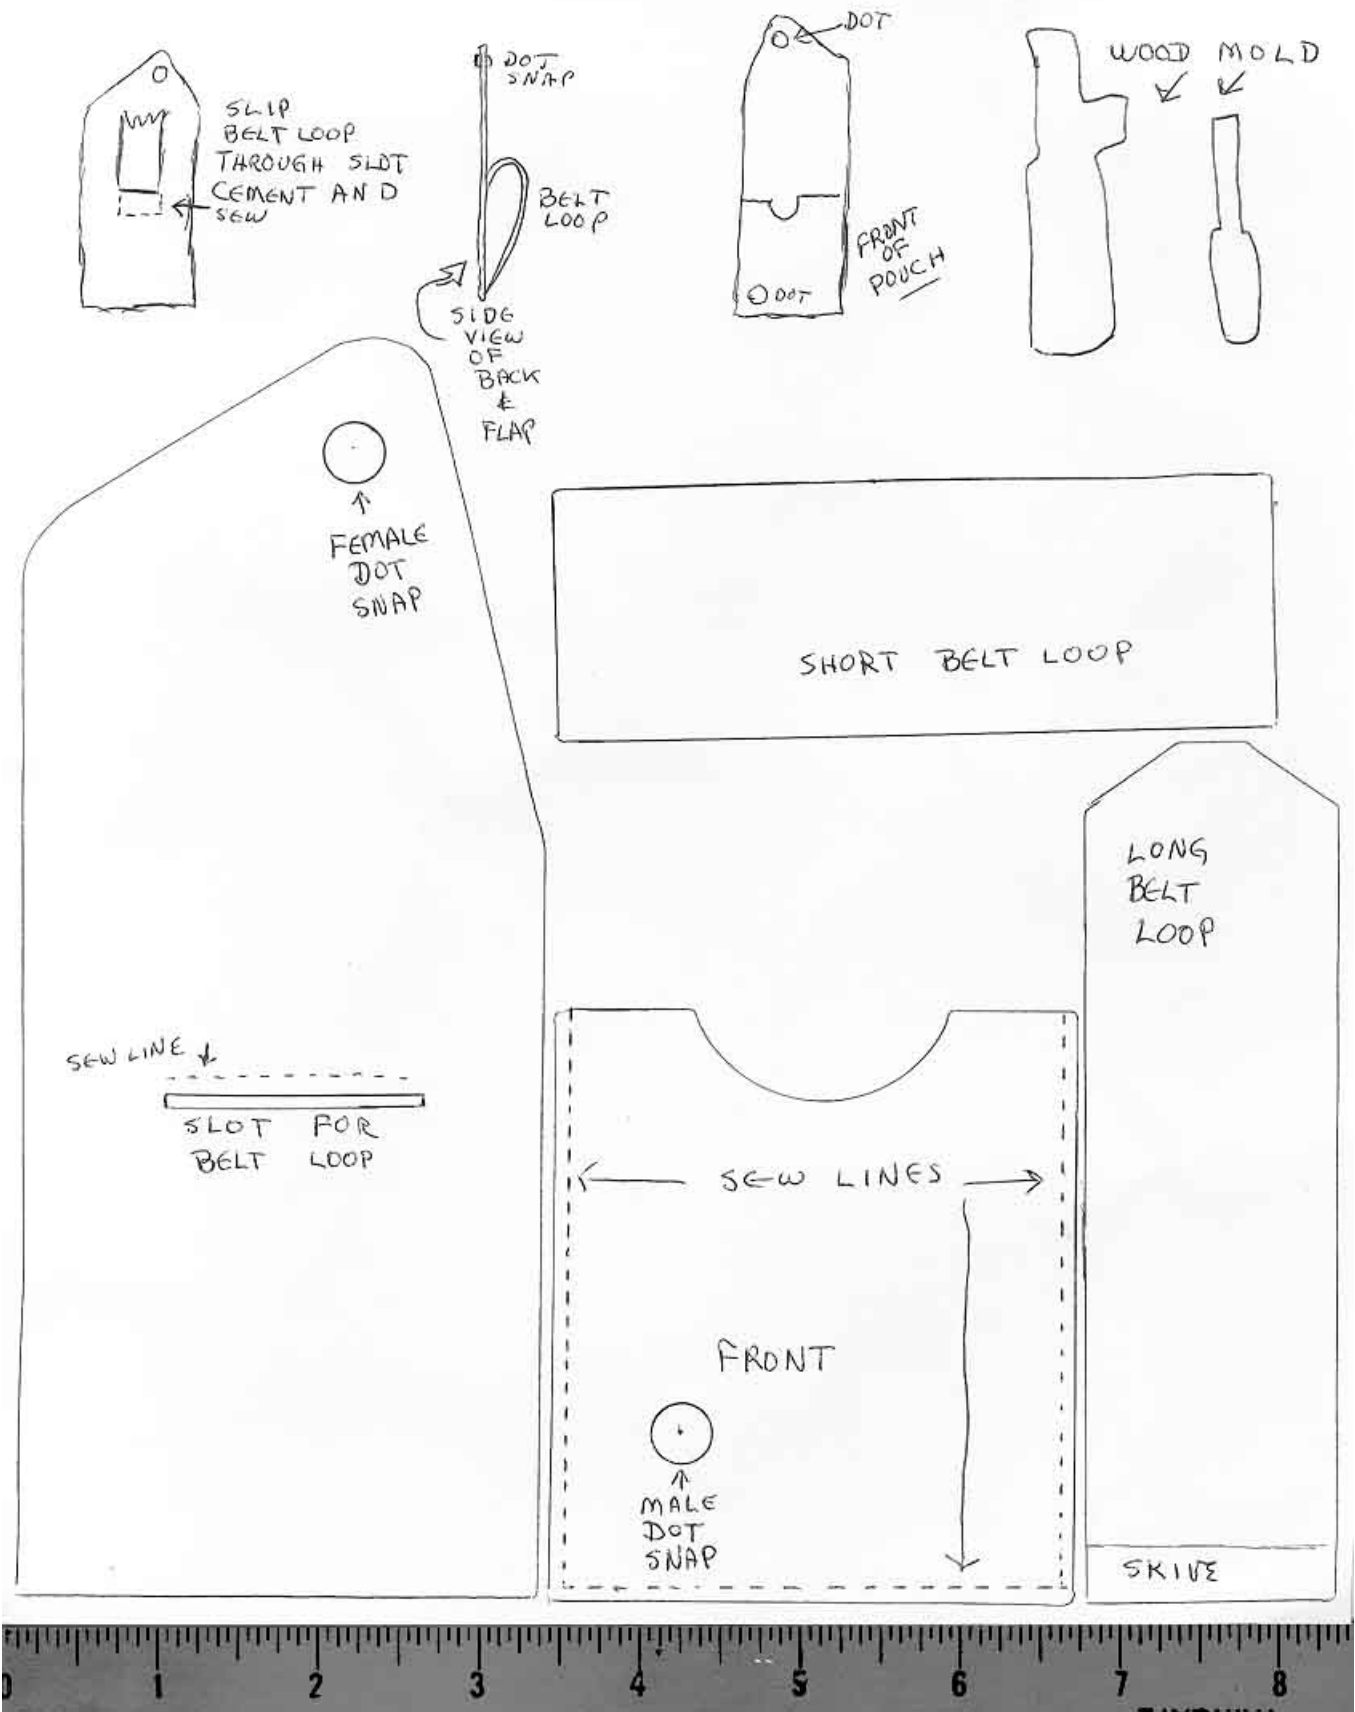 SLIP
BELT LOOP
THROUGH SLOT
CEMENT AND
SEW
DOT
SNAP
BELT
LOOP
SIDE
VIEW
OF
BACK
&
FLAP
DOT
FRONT
OF
POUCH
DOT
WOOD MOLD
FEMALE
DOT
SNAP
SHORT BELT LOOP
LONG
BELT
LOOP
SEW LINE
SLOT FOR
BELT LOOP
SEW LINES
FRONT
MALE
DOT
SNAP
SKIVE
0 1 2 3 4 5 6 7 8